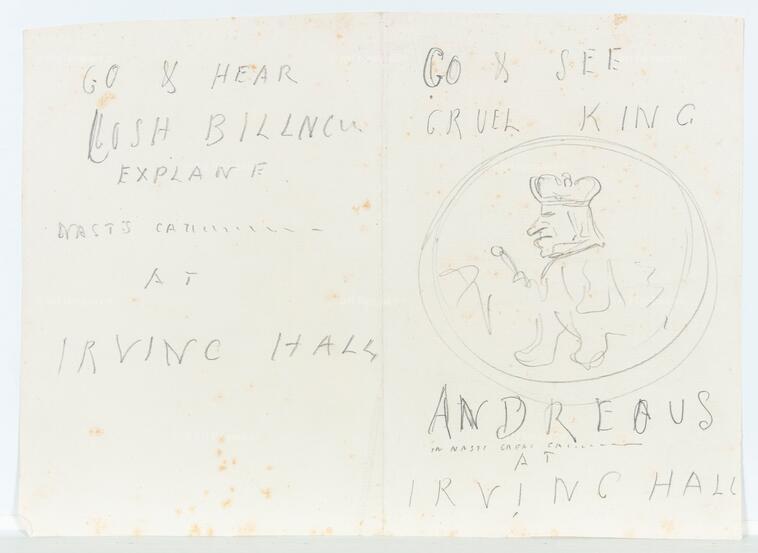 GO & HEAR
JOSH BILLNCU
EXPLANE
NAST'S
AT
IRVING HALL
GO & SEE
CRUEL KING
ANDREOUS
IN NAST'S GREAT
AT
IRVING HALL